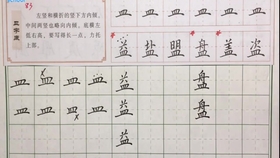 皿字底
左竖和横折的竖下方内倾,
中间两竖也略向内倾,底横左
低右高,要写得长一点,力托
上部。
皿 皿 皿 皿 益 盐 盟 盘 盖 盗
皿 皿 皿 皿 益 盘
皿 皿 皿 皿 益 盘
益